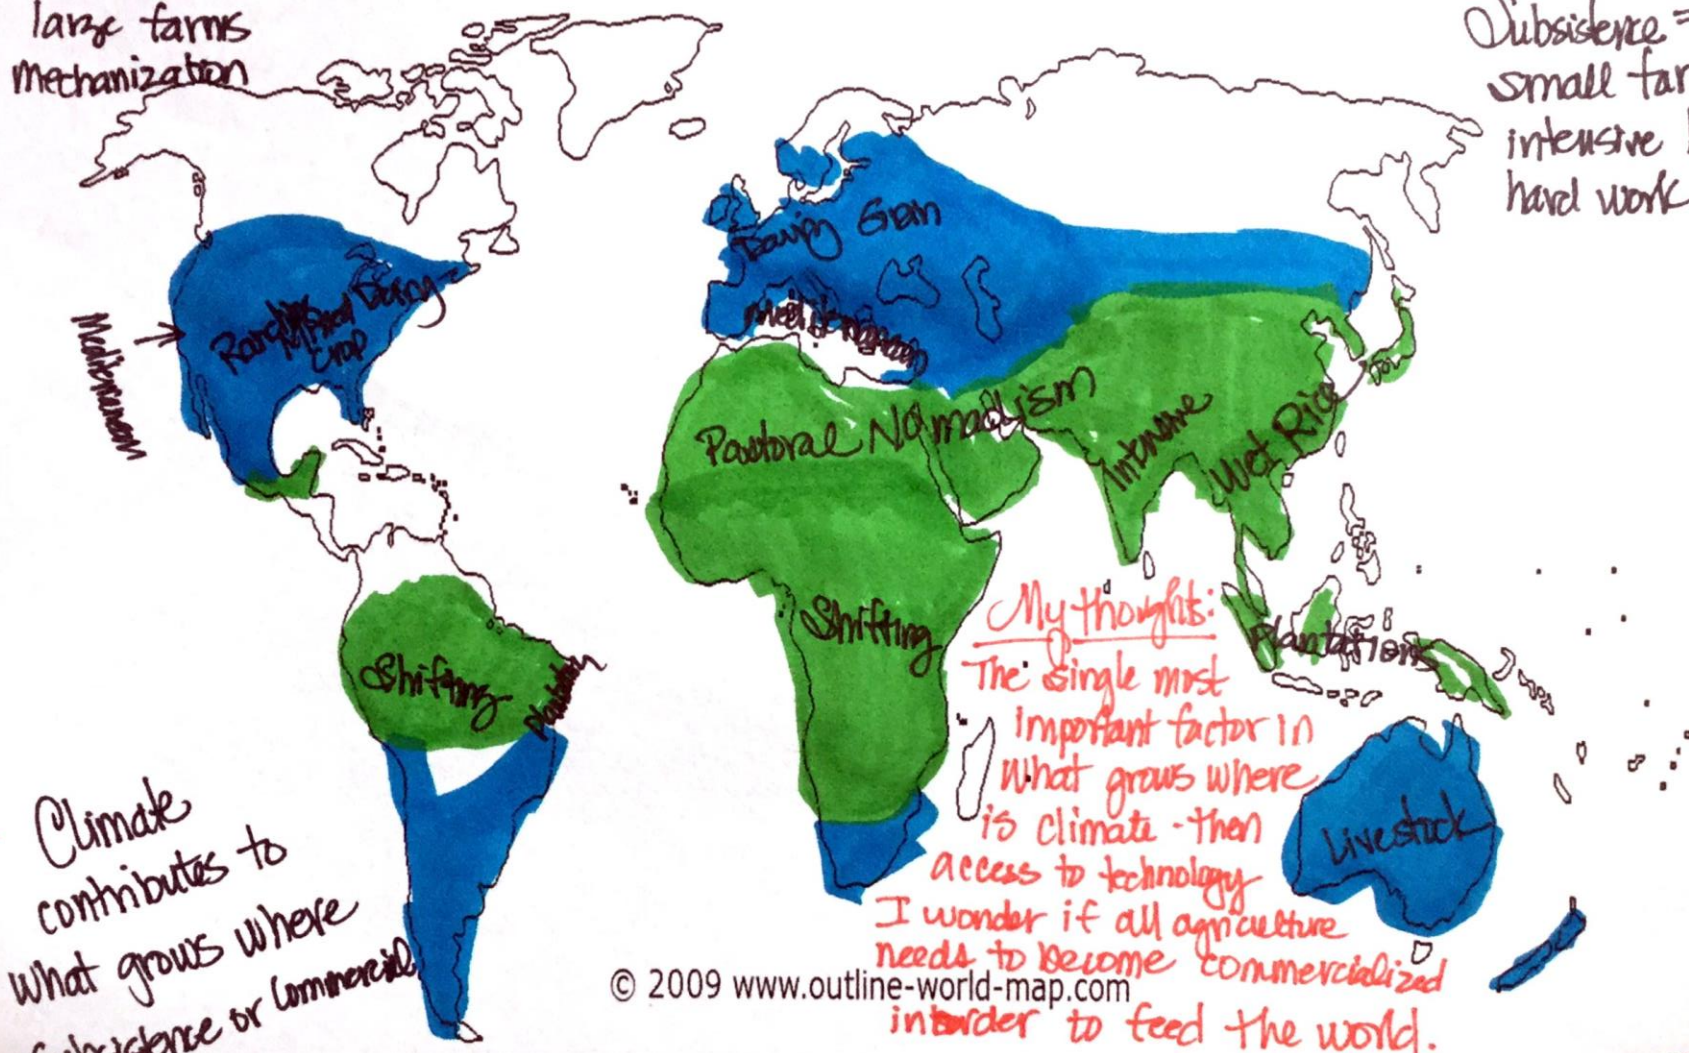 large farms
mechanization
Subsistence =
small far
intensive
hard work
Dairy Grain
Mediterranean
Ranching Mixed Dairy
Crop
Mediterranean
Pastoral Nomadism
Intensive
Wet Rice
Shifting
Plantations
Shifting
Livestock
My thoughts:
The single most
important factor in
what grows where
is climate - then
access to technology
I wonder if all agriculture
needs to become commercialized
in order to feed the world.
Climate
contributes to
what grows where
subsistence or Commercial
© 2009 www.outline-world-map.com